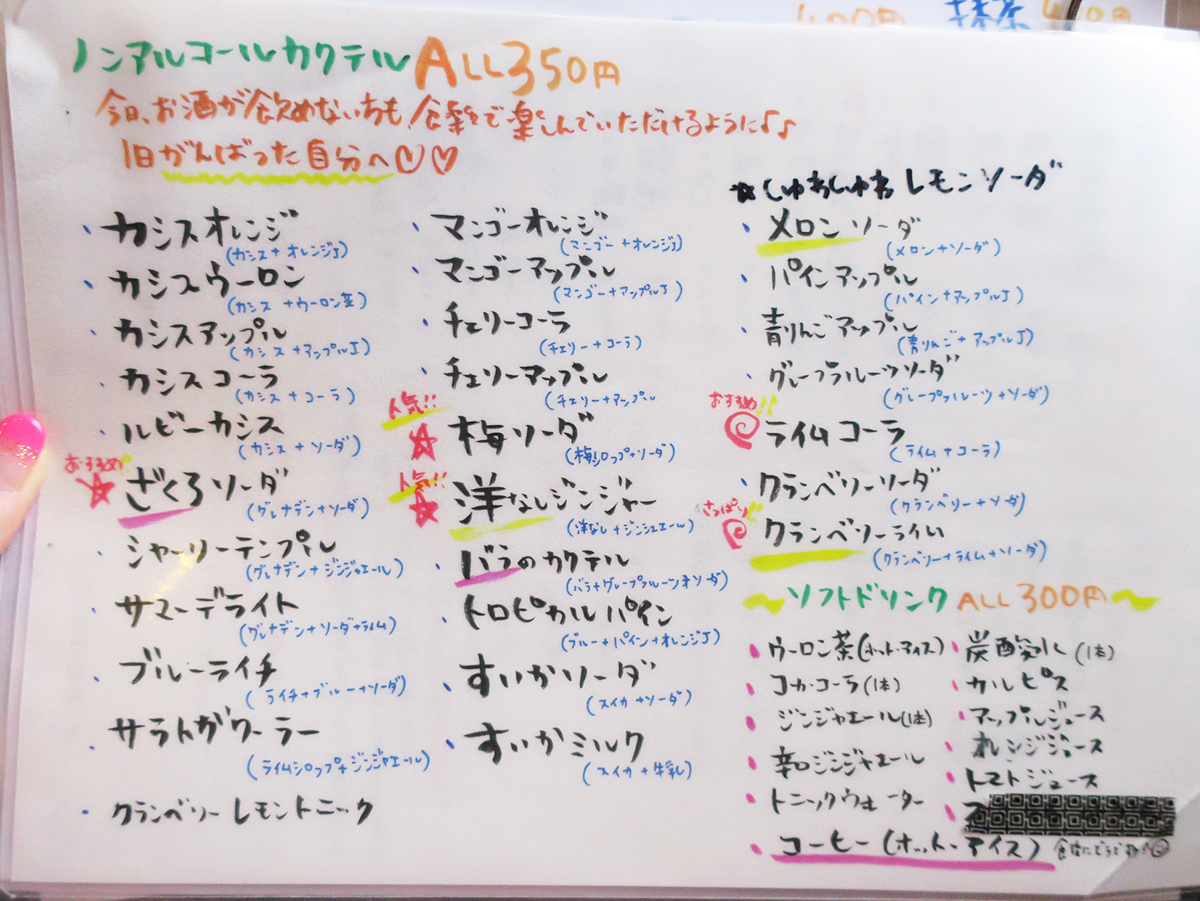 400円 抹茶 400円
ノンアルコールカクテル ALL350円
今日、お酒が飲めない方も、食業で楽しんでいただけるように♪♪
1日がんばった自分へ♡♡
・カシスオレンジ
(カシス+オレンジJ)
・カシスウーロン
(カシス+ウーロン茶)
・カシスアップル
(カシス+アップルJ)
・カシスコーラ
(カシス+コーラ)
・ルビーカシス
(カシス+ソーダ)
おすすめ
☆ざくろソーダ
(グレナデン+ソーダ)
・シャーリーテンプル
(グレナデン+ジンジャエール)
・サマーデライト
(グレナデン+ソーダ+ライム)
・ブルーライチ
(ライチ+ブルー+ソーダ)
・サラトガクーラー
(ライムシロップ+ジンジャエール)
・クランベリーレモントニック
・マンゴーオレンジ
(マンゴー+オレンジJ)
・マンゴーアップル
(マンゴー+アップルJ)
・チェリーコーラ
(チェリー+コーラ)
・チェリーアップル
(チェリー+アップル
人気!!
☆梅ソーダ
(梅シロップ+ソーダ)
人気!!
☆洋なしジンジャー
(洋なし+ジンジャエール)
・バラのカクテル
(バラ+グレープフルーツ+ソーダ)
・トロピカルパイン
(ブルー+パイン+オレンジJ)
・すいかソーダ
(スイカ+ソーダ)
・すいかミルク
(スイカ+牛乳)
☆しゅわしゅわレモンソーダ
・メロンソーダ
(メロン+ソーダ)
・パインアップル
(パイン+アップルJ)
・青りんごアップル
(青りんご+アップルJ)
・グレープフルーツソーダ
(グレープフルーツ+ソーダ)
おすすめ!!
ライムコーラ
(ライム+コーラ)
・クランベリーソーダ
(クランベリー+ソーダ)
さっぱり!!
クランベリーライム
(クランベリー+ライム+ソーダ)
〜ソフトドリンク ALL 300円〜
・ウーロン茶(ホット・アイス)
・コカ・コーラ(1本)
・ジンジャエール(1本)
・辛口ジンジャエール
・トニックウォーター
・コーヒー(ホット・アイス)
・炭酸水(1本)
・カルピス
・アップルジュース
・オレンジジュース
・トマトジュース